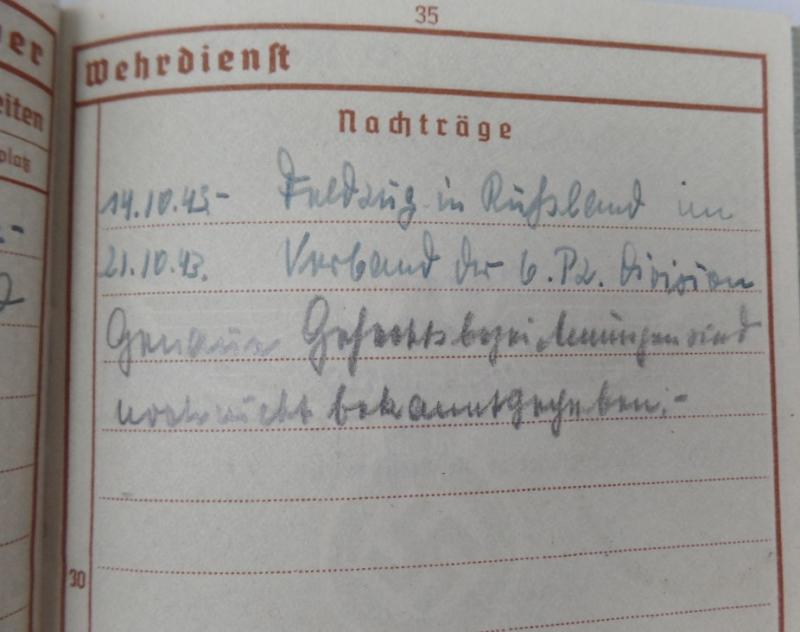 35
er
Wehrdienst
eiten
Nachträge
platz
14.10.43- Feldzug in Rußland im
21.10.43. Verband der 6. Pz. Division
Genaue Gefechtsbezeichnungen sind
noch nicht bekanntgegeben.-
30